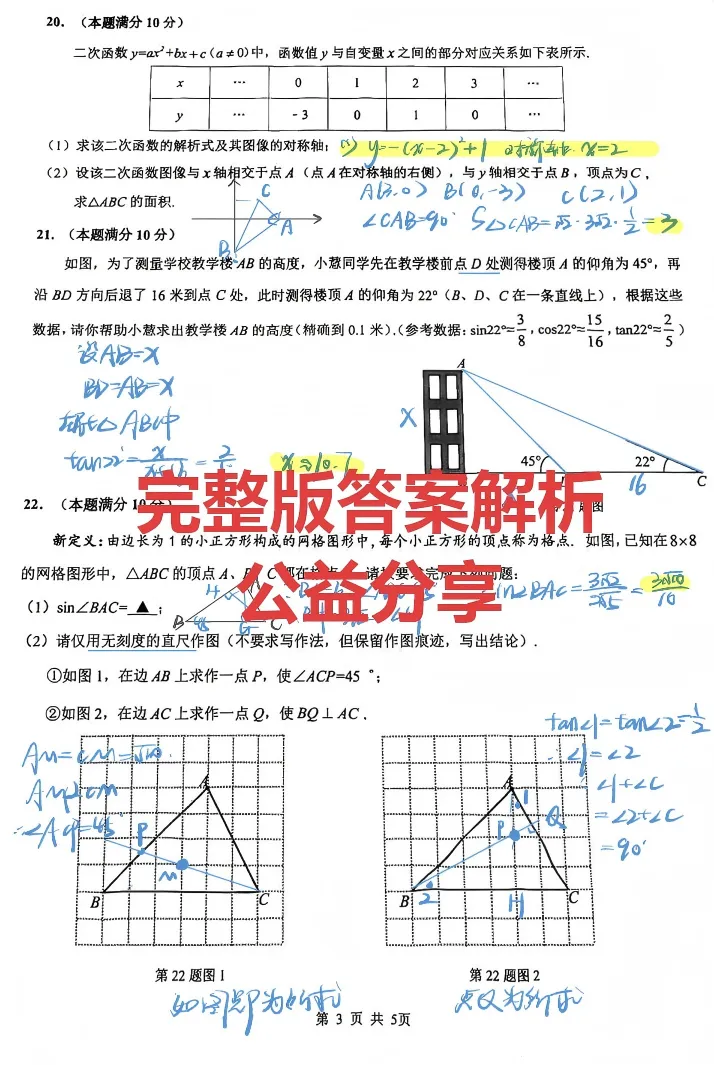 20. （本题满分 10 分）
二次函数 y=ax²+bx+c（a≠0）中，函数值 y 与自变量 x 之间的部分对应关系如下表所示.
x … 0 1 2 3 …
y … -3 0 1 0 …
（1）求该二次函数的解析式及其图像的对称轴；(1) y=-(x-2)²+1 对称轴 x=2
（2）设该二次函数图像与 x 轴相交于点 A（点 A 在对称轴的右侧），与 y 轴相交于点 B，顶点为 C，
A(3,0) B(0,-3) C(2,1)
求△ABC 的面积.
∠CAB=90° S△CAB=√2·3√2·1/2=3
C
A
B
21. （本题满分 10 分）
如图，为了测量学校教学楼 AB 的高度，小慧同学先在教学楼前点 D 处测得楼顶 A 的仰角为 45°，再
沿 BD 方向后退了 16 米到点 C 处，此时测得楼顶 A 的仰角为 22°（B、D、C 在一条直线上），根据这些
数据，请你帮助小慧求出教学楼 AB 的高度（精确到 0.1 米）.（参考数据：sin22°≈3/8，cos22°≈15/16，tan22°≈2/5）
设AB=x
BD=AB=x
△ABC中
x≈10.7
A
x
45°
22°
16
C
完整版答案解析
公益分享
22. （本题满分 10 分）
新定义：由边长为 1 的小正方形构成的网格图形中，每个小正方形的顶点称为格点．如图，已知在 8×8
的网格图形中，△ABC 的顶点 A、B、C 都在格点
（1）sin∠BAC= ▲ ；
sin∠BAC=
3√10/10
B
C
（2）请仅用无刻度的直尺作图（不要求写作法，但保留作图痕迹，写出结论）.
①如图 1，在边 AB 上求作一点 P，使∠ACP=45 °；
②如图 2，在边 AC 上求作一点 Q，使 BQ⊥AC．
AM=CM=√10
AM⊥CM
∴∠ACP=45°
A
P
M
B
C
tan∠1=tan∠2=1/2
∴∠1=∠2
∠1+∠C
=∠2+∠C
=90°
A
1
P
Q
B
2
H
C
第 22 题图 1
第 22 题图 2
如图点P为所求
点Q为所求
第 3 页 共 5页